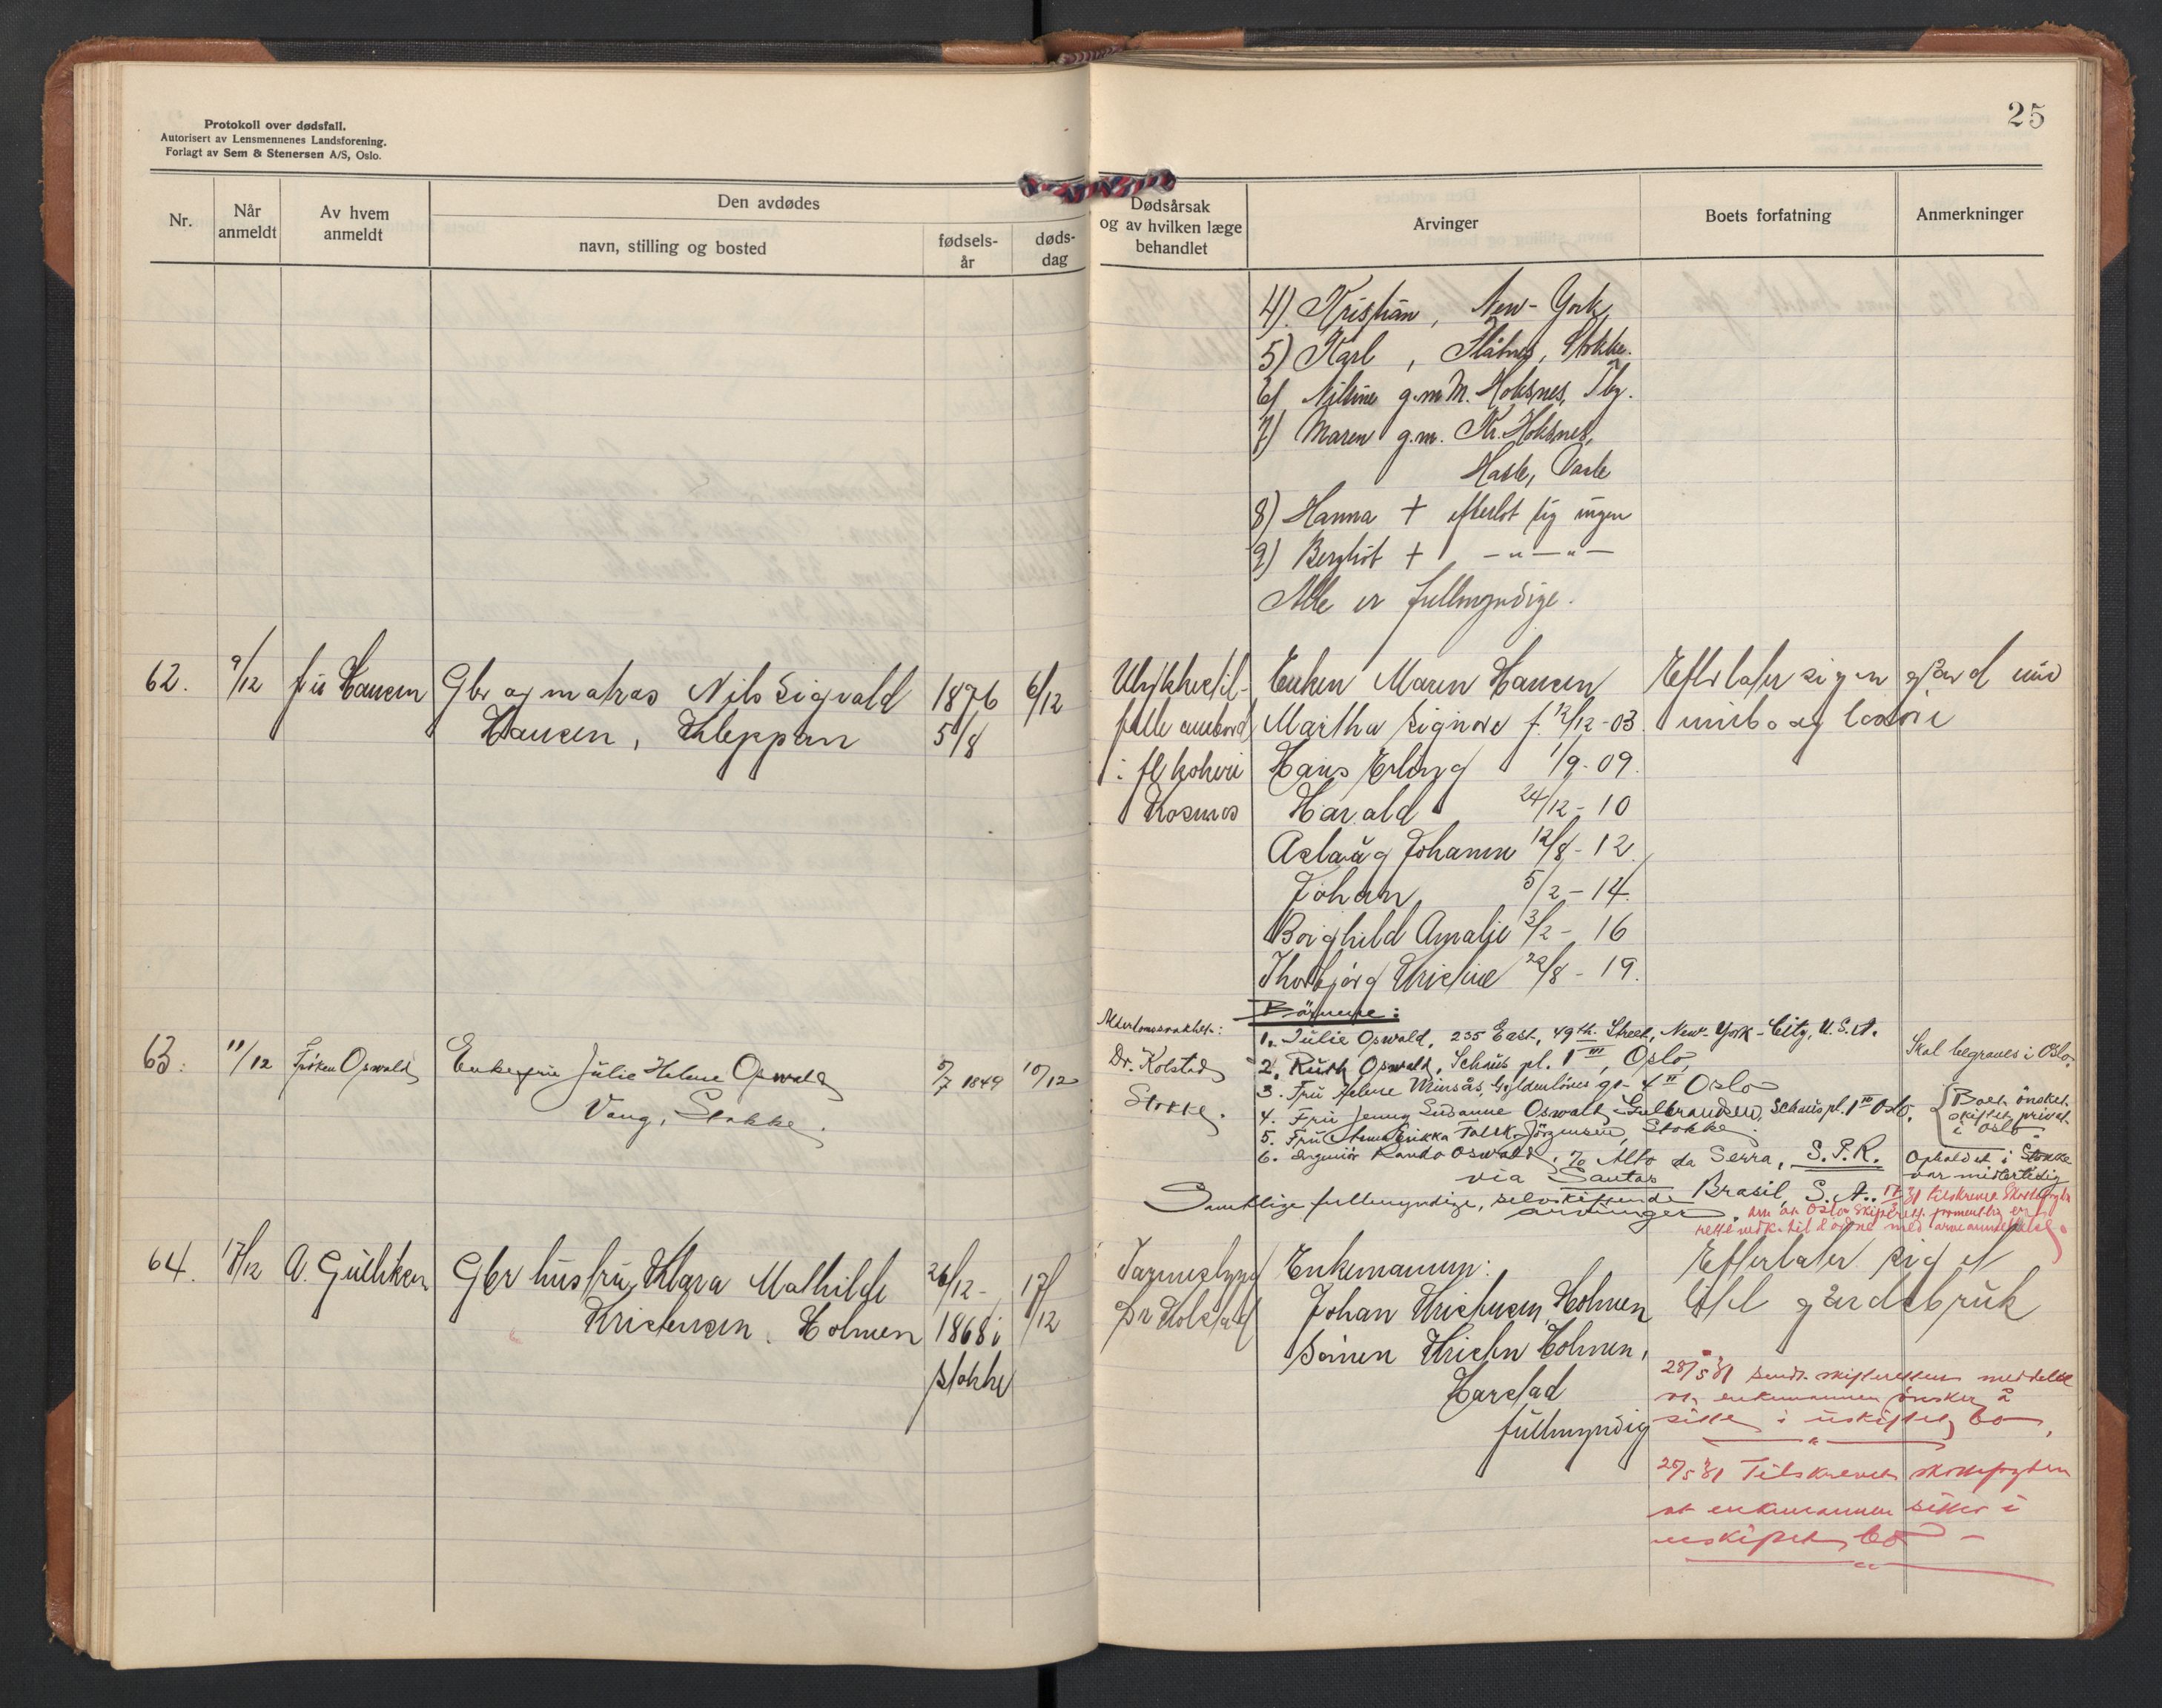 Protokoll over dødsfall.
Autorisert av Lensmennenes Landsforening.
Forlagt av Sem & Stenersen A/S, Oslo.
25
Nr.
Når anmeldt
Av hvem anmeldt
Den avdødes
navn, stilling og bosted
fødsels-
år
døds-
dag
Dødsårsak
og av hvilken læge
behandlet
Arvinger
Boets forfatning
Anmerkninger
4) Kristian, New-York,
5) Karl, Stokke.
6) g.m M. Hoksnes, Tbg.
7) Maren g.m. Kr. Hoksnes,
Hasle,
8) Hanna + efterlot sig ingen
9) Bergliot + -"-"-
Alle er fullmyndige.
62. 9/12 fru Hansen
Gbr og matros Nils Sigvald
Hansen, Kleppan
1876
5/8
6/12
Ulykkestil-
felle ombord
i fl. kokeri
Kosmos
Enken Maren Hansen
Martha Signore f. 12/12-03.
Hans Erling 1/9-09.
Harald 24/12-10
Aslaug Johanne 12/8-12.
Johan 5/2-14.
Borghild Amalie 3/2-16
Thorbjørg Kristine 22/8-19.
Efterlater sig en gård med
innbo og løsøre
63. 11/12 Frøken Oswald
Enkefru Julie Helene Oswald
Vang, Stokke.
5/7 1849
10/12
Alderdomssvakhet:
Dr. Kolstad
Stokke.
Børnene:
1. Julie Oswald, 235 East, 49th. Street, New-York-City, U.S.A.
2. Ruth Oswald, Schøus pl. 1 III, Oslo,
3. Fru Helene Winsås, Gyldenløves gt. 4 II Oslo
4. Fru Jenny Susanne Oswald Gulbrandsen, Schøus pl. 1 III Oslo,
5. Fru Anna Erikka Falck-Jørgensen, Stokke.
6. Ingeniør Oswald, Alto da Serra, S.P.R.
via Santos
Brasil, S.A.
Samtlige fullmyndige, selvskiftende
arvinger.
Skal begraves i Oslo.
Boet ønskes
skiftet privat
i Oslo
Opholdet i Stokke
var midlertidig
tilskrevet Skattefogden
om at Oslo Skifterett formentlig er
rette vedk. til å ordne med arveanmeldelse.
64. 17/12 A. Gulliksen
Gbr hustru, Klara Mathilde
Kristensen, Holmen
26/12-
1868 i
Stokke
17/12
Tarmslyng
Dr Kolstad
Enkemannen:
Johan Kristensen, Holmen
Sønnen Kristen Holmen,
Harstad
fullmyndig
Efterlater sig et
litet gårdsbruk
28/5 31 sendt skifteretten meddelelse
at enkemannen ønsker å
sitte i uskiftet bo,
28/5 31 Tilskrevet skattefogden
at enkemannen sitter i
uskiftet bo -